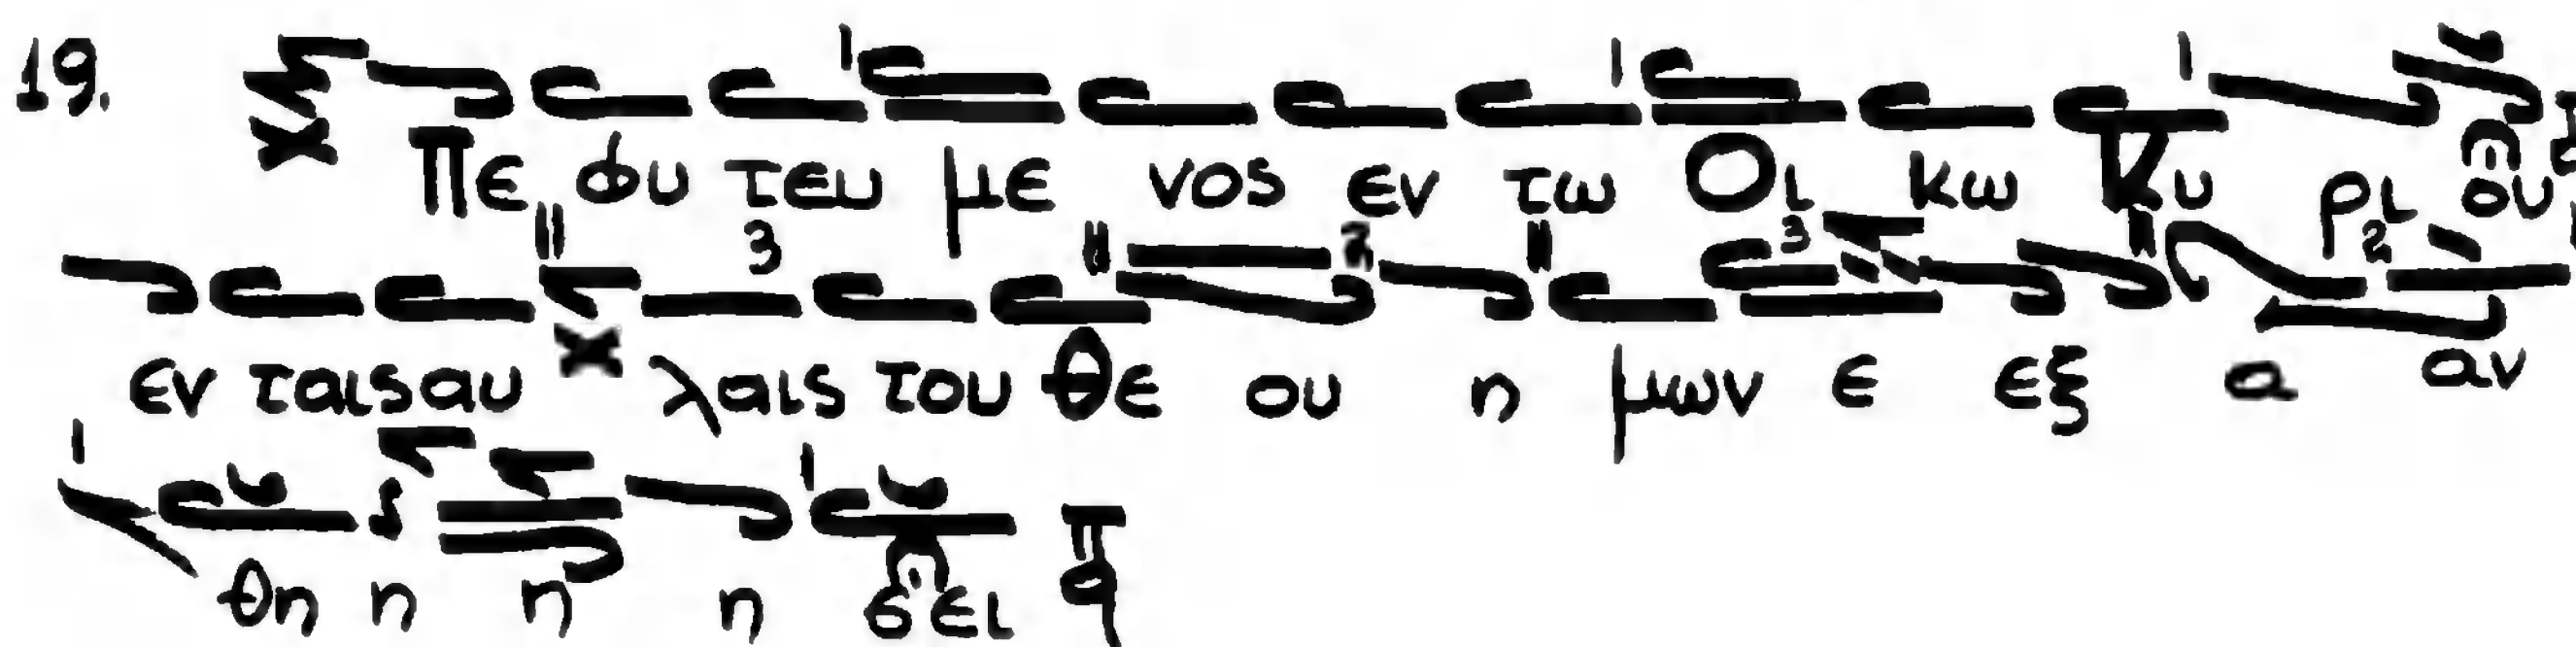 19. Πε φυ τευ με νος εν τω Οι κω Κυ ρι ου
εν ταις αυ λαις του θε ου η μων ε εξ α αν
θη η η η σει